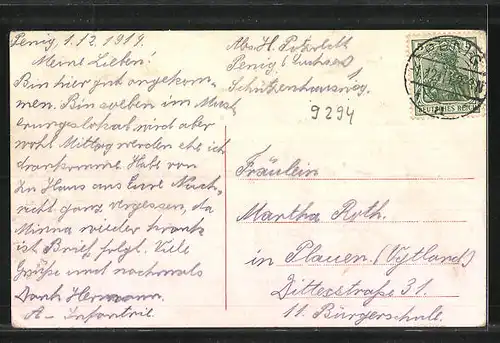 Penig, 1.12.1919.
Meine Lieben!
Bin hier gut angekom-
men. Bin soeben im Must
erungslokal, wird aber
wohl Mittag werden ehe ich
drankomme. Habe von
zu Haus aus Eure Nach-
richt ganz vergessen, da
Minna wieder krank
ist. Brief folgt. Viele
Grüße und nochmals
Dank Hermann.
A - Infantrie.
Abs. H.
Penig (Sachsen)
9294
DEUTSCHES REICH
Fräulein
Martha Roth.
in Plauen. (Vgtland)
Ditterstraße 31.
11. Bürgerschule.